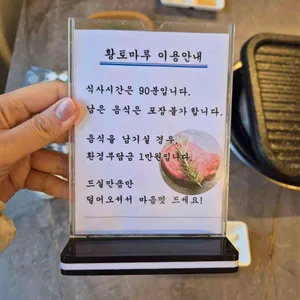 황토마루 이용안내
식사시간은 90분입니다.
남은 음식은 포장불가 합니다.
음식을 남기실 경우,
환경부담금 1만원입니다.
드실만큼만
덜어오셔서 마음껏 드세요!